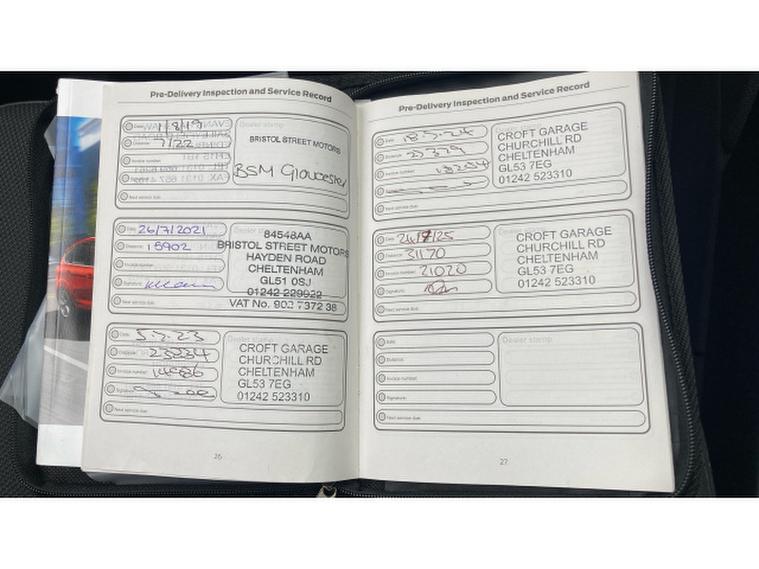 Pre-Delivery Inspection and Service Record
Date: 1/8/19
Distance: 7122
Invoice number:
Next service due:
Dealer stamp
BRISTOL STREET MOTORS
BSM Gloucester
Date: 26/7/2021
Distance: 15902
Invoice number:
Signature:
Next service due:
84548AA
BRISTOL STREET MOTORS
HAYDEN ROAD
CHELTENHAM
GL51 0SJ
01242 229922
VAT No. 902 7372 38
Date:
Distance: 23234
Invoice number:
Signature:
Next service due:
Dealer stamp
CROFT GARAGE
CHURCHILL RD
CHELTENHAM
GL53 7EG
01242 523310
26
Pre-Delivery Inspection and Service Record
Date:
Distance: 27379
Invoice number: 18254
Next service due:
CROFT GARAGE
CHURCHILL RD
CHELTENHAM
GL53 7EG
01242 523310
Date:
Distance: 31170
Invoice number: 21020
Signature:
Next service due:
CROFT GARAGE
CHURCHILL RD
CHELTENHAM
GL53 7EG
01242 523310
Date:
Distance:
Invoice number:
Signature:
Next service due:
Dealer stamp
27